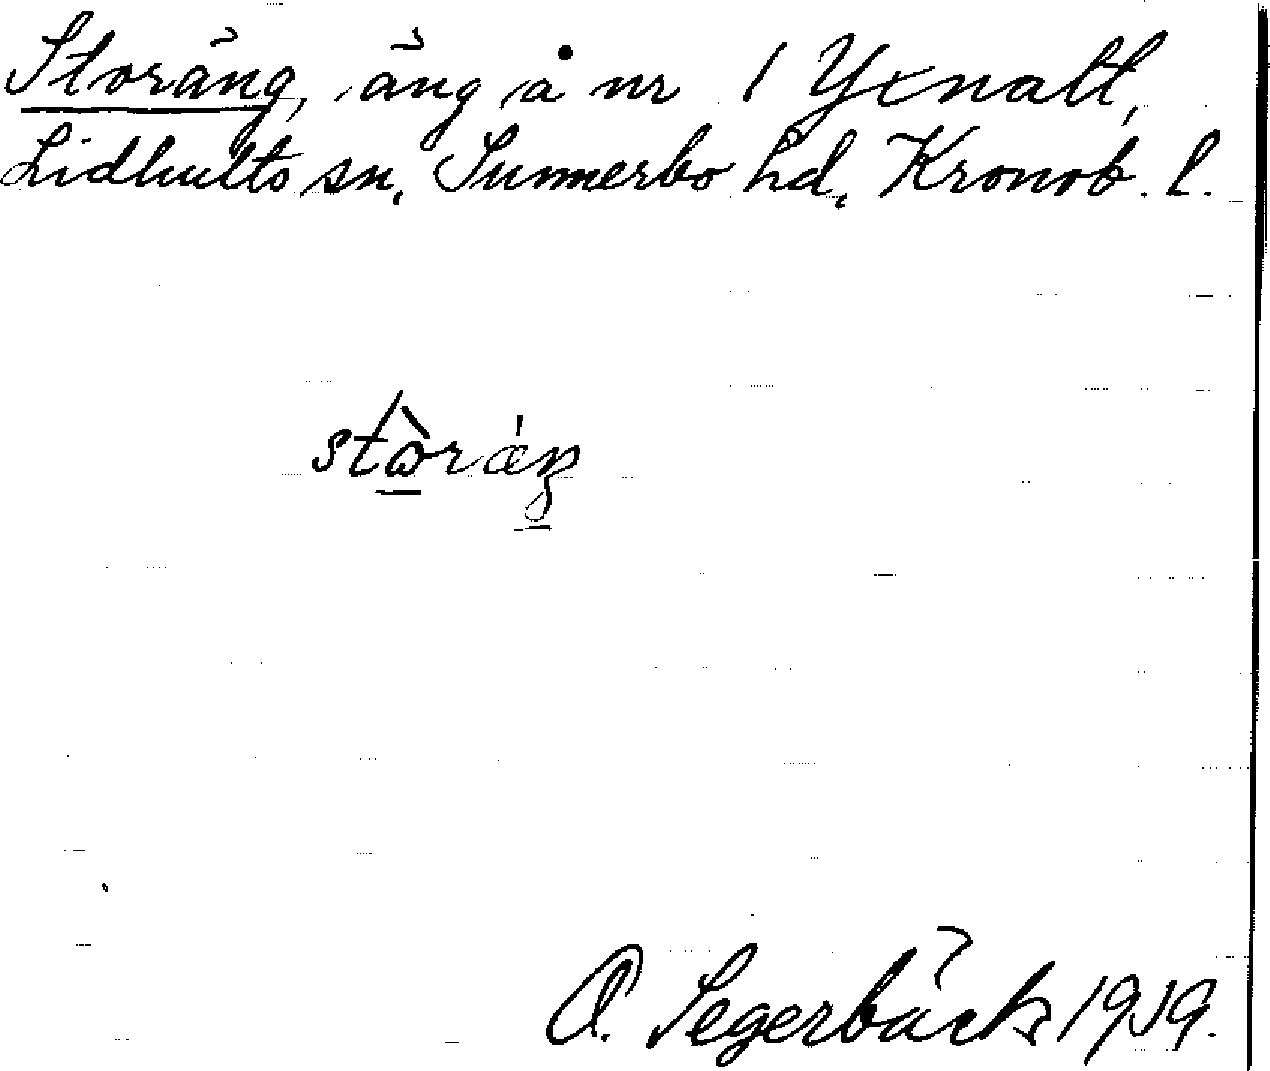 Storäng, äng å nr 1 Yxnalt,
Lidhults sn, Sunnerbo hd, Kronob. l.
stὼrǽŋ
Segerbäck 1919.